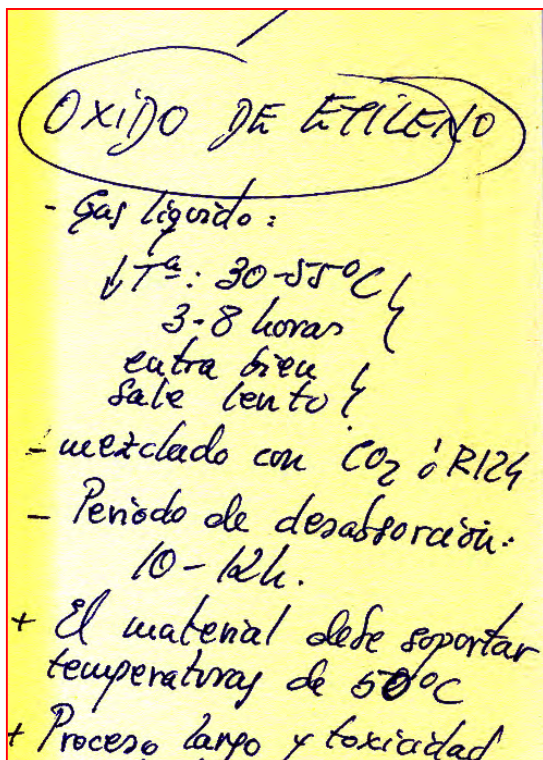 OXIDO DE ETILENO
- Gas líquido:
↓Tª: 30-55ºC
3-8 horas
entra bien
sale lento
- mezclado con CO2 ó R124
- Periodo de desabsorción:
10-12h.
+ El material debe soportar
temperaturas de 50ºC
+ Proceso largo y toxicidad